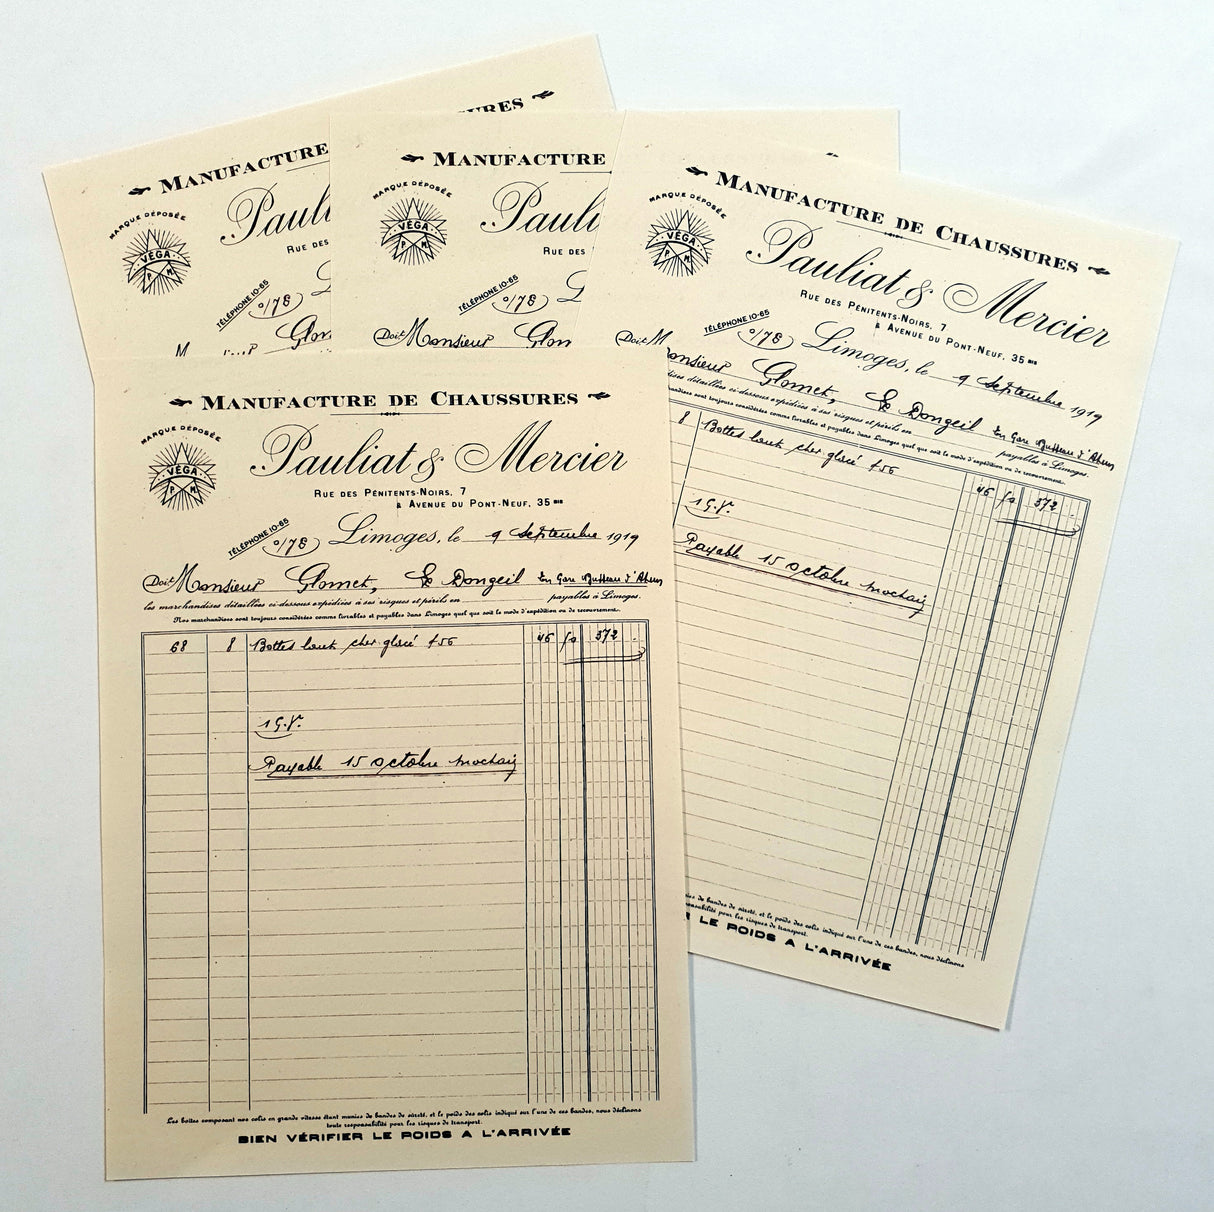 MANUFACTURE
URES
MARQUE DÉPOSÉE
VÉGA
P M
Pauli
RUE DES
TÉLÉPHONE 10-65
0/78
L
M
Glom
MANUFACTURE
MARQUE DÉPOSÉE
VÉGA
P M
Pauli
RUE DES
TÉLÉPHONE 10-65
0/78
L
Doit Monsieur Glom
MANUFACTURE DE CHAUSSURES
MARQUE DÉPOSÉE
VÉGA
P M
Pauliat & Mercier
RUE DES PÉNITENTS-NOIRS, 7
& AVENUE DU PONT-NEUF, 35 BIS
TÉLÉPHONE 10-65
0/78
Limoges, le 9 Septembre 1919
Doit Monsieur Glomet, Dongeil En Gare Busseau d'Ahun
ses détaillées ci-dessous expédiées à ses risques et périls en payables à Limoges.
sont toujours considérées comme livrables et payables dans Limoges quel que soit le mode d'expédition ou de recouvrement.
8 Bottes haut chev glacé 456 46 50 372
1 G.V.
Payable 15 octobre prochain
de bandes de sûreté, et le poids des colis indiqué sur l'une de ces bandes, nous déclinons
responsabilité pour les risques de transport.
R LE POIDS A L'ARRIVÉE
MANUFACTURE DE CHAUSSURES
MARQUE DÉPOSÉE
VÉGA
P M
Pauliat & Mercier
RUE DES PÉNITENTS-NOIRS, 7
& AVENUE DU PONT-NEUF, 35 BIS
TÉLÉPHONE 10-65
0/78
Limoges, le 9 Septembre 1919
Doit Monsieur Glomet, Dongeil En Gare Busseau d'Ahun
les marchandises détaillées ci-dessous expédiées à ses risques et périls en payables à Limoges.
Nos marchandises sont toujours considérées comme livrables et payables dans Limoges quel que soit le mode d'expédition ou de recouvrement.
68 8 Bottes haut chev glacé 456 46 50 372
1 G.V.
Payable 15 octobre prochain
Les boîtes composant nos colis en grande vitesse étant munies de bandes de sûreté, et le poids des colis indiqué sur l'une de ces bandes, nous déclinons
toute responsabilité pour les risques de transport.
BIEN VÉRIFIER LE POIDS A L'ARRIVÉE